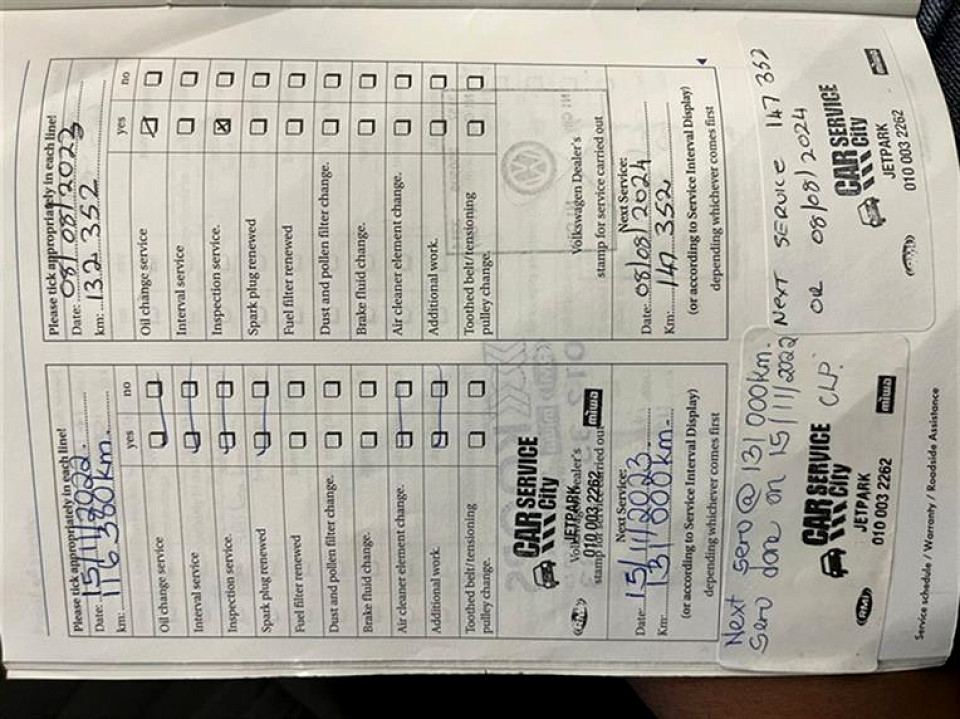 Please tick appropriately in each line!
Date: 15/11/2022.
km: 116 380 km.
yes no
Oil change service
Interval service
Inspection service.
Spark plug renewed
Fuel filter renewed
Dust and pollen filter change.
Brake fluid change.
Air cleaner element change.
Additional work.
Toothed belt/tensioning
pulley change.
CAR SERVICE
City
JETPARK
010 003 2262
RMI
miwa
Volkswagen Dealer's
stamp for service carried out
Next Service:
Date: 15/11/2023.
Km: 131 000 km.
(or according to Service Interval Display)
depending whichever comes first
Next serv @ 131 000 km.
Serv done on 15/11/2022
CAR SERVICE
City
CLP.
JETPARK
010 003 2262
RMI
miwa
Please tick appropriately in each line!
Date: 08/08/2023
km: 132 352
yes no
Oil change service
Interval service
Inspection service.
Spark plug renewed
Fuel filter renewed
Dust and pollen filter change.
Brake fluid change.
Air cleaner element change.
Additional work.
Toothed belt/tensioning
pulley change.
Volkswagen Dealer's
stamp for service carried out
Next Service:
Date: 08/08/2024
Km: 147 352
(or according to Service Interval Display)
depending whichever comes first
NEXT SERVICE 147 352
OR 08/08/2024
CAR SERVICE
City
JETPARK
010 003 2262
miwa
Service schedule / Warranty / Roadside Assistance